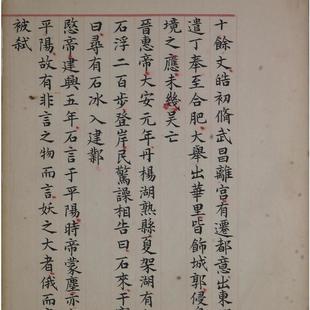 十餘丈皓初脩武昌離宮有遷都意出東
遣丁奉至合肥大舉出華里皆飾城郭侵
境之應未幾吳亡
晉惠帝大安元年丹楊湖熟縣夏架湖有
石浮二百步登岸民驚譟相告曰石來干
曰尋有石冰入建鄴
愍帝建興五年石言于平陽時帝蒙塵亦
平陽故有非言之物而言妖之大者俄而
被弒